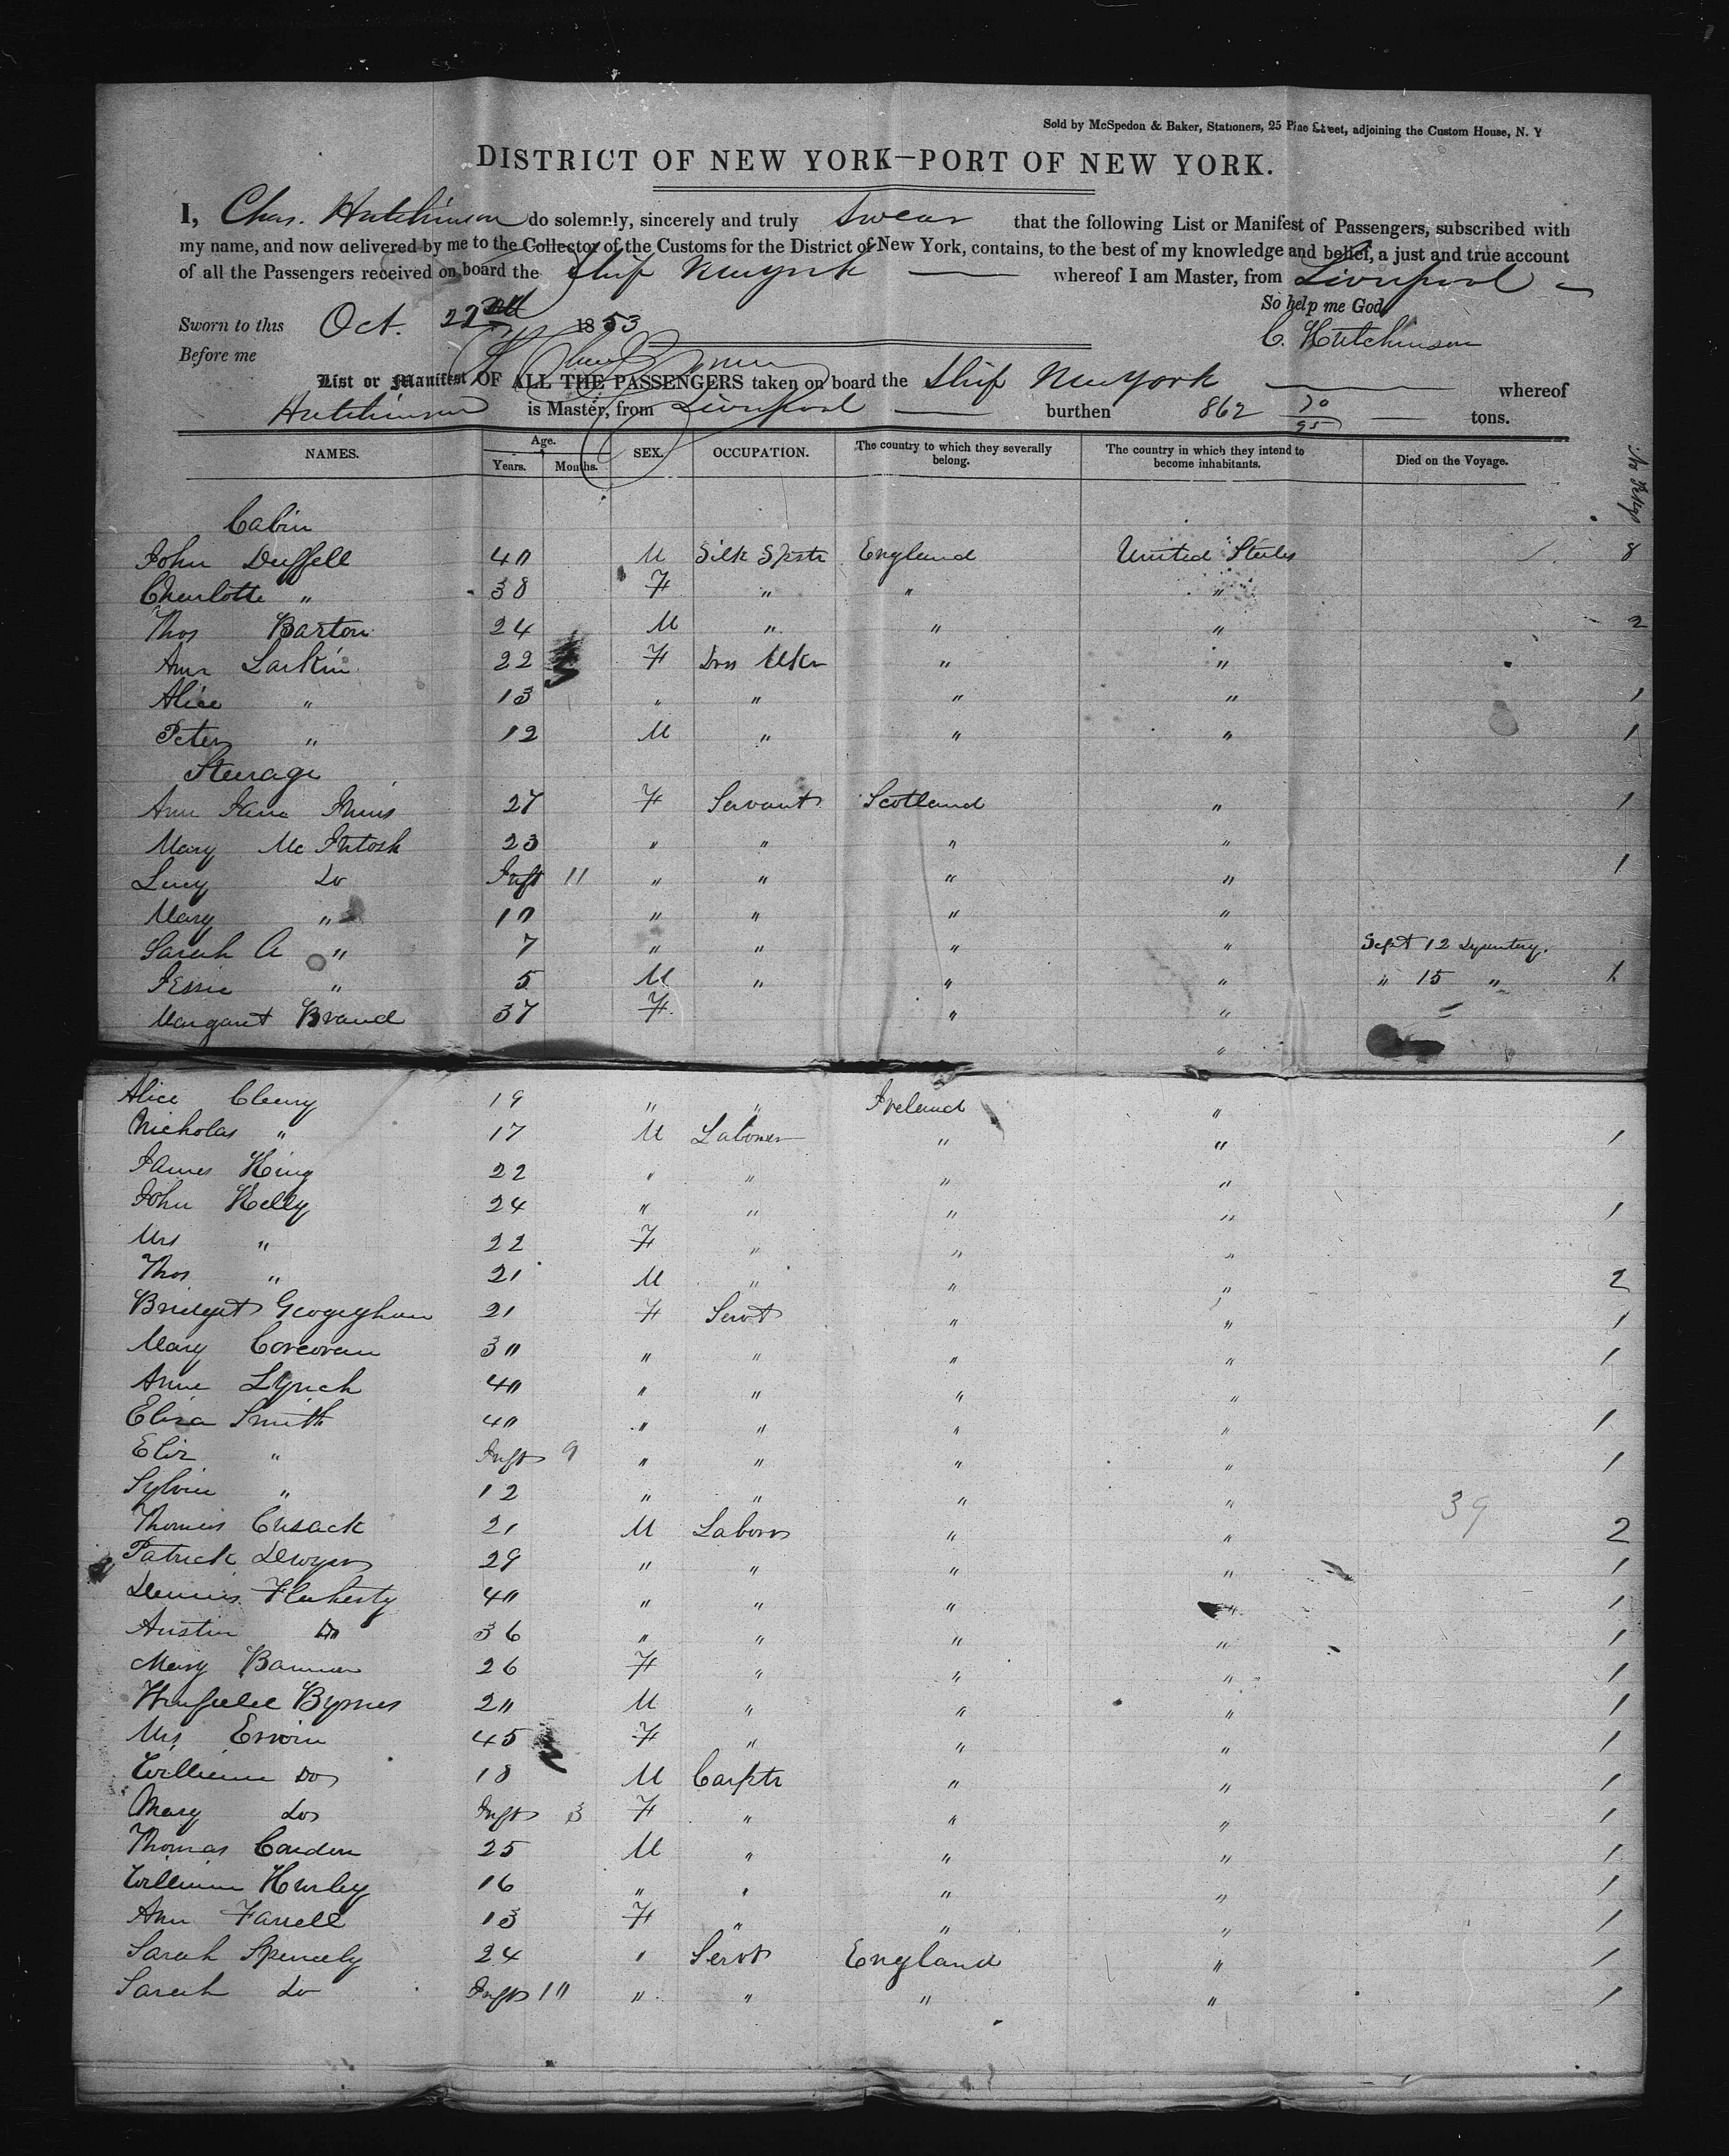 Sold by McSpedon & Baker, Stationers, 25 Pine Street, adjoining the Custom House, N. Y
DISTRICT OF NEW YORK—PORT OF NEW YORK.
I, Chas. Hutchinson do solemnly, sincerely and truly swear that the following List or Manifest of Passengers, subscribed with
my name, and now delivered by me to the Collector of the Customs for the District of New York, contains, to the best of my knowledge and belief, a just and true account
of all the Passengers received on board the Ship New York whereof I am Master, from Liverpool
So help me God
Sworn to this Oct. 22nd 1853
C. Hutchinson
Before me
List or Manifest OF ALL THE PASSENGERS taken on board the Ship New York whereof
Hutchinson is Master, from Liverpool burthen 862 70/95 tons.
NAMES. Age. Years. Months. SEX. OCCUPATION. The country to which they severally belong. The country in which they intend to become inhabitants. Died on the Voyage.
Cabin
John Duffell 40 M Silk Spstr England United States 8
Charlotte " 38 F " " "
Thos Barton 24 M " " " 2
Ann Larkin 22 F Drss Mkr " "
Alice " 13 " " " " 1
Peter " 12 M " " " 1
Steerage
Ann Jane 27 F Servant Scotland " 1
Mary McIntosh 23 " " " "
Lucy Do Inft 11 " " " " 1
Mary " 10 " " " "
Sarah A " 7 " " " " Sept 12 Dysentery.
Jessie " 5 M " " " " 15 " 1
Margaret Brand 37 F " "
"
Alice Cleary 19 " " Ireland "
Nicholas " 17 M Laborer " " 1
James King 22 " " " "
John Kelly 24 " " " " 1
Mrs " 22 F " " "
Thos " 21 M " " " 2
Bridget Geogeghan 21 F Servt " " 1
Mary Corcoran 30 " " " " 1
Anne Lynch 40 " " " "
Eliza Smith 40 " " " " 1
Eliz " Inft 9 " " " " 1
Sylvia " 12 " " " " 39
Thomas Cusack 21 M Labors " " 2
Patrick Dwyer 29 " " " " 1
Dennis Flaherty 40 " " " " 1
Austin Do 36 " " " " 1
Mary Bannon 26 F " " " 1
Byrnes 20 M " " " 1
Mrs Erwin 45 F " " " 1
William Do 18 M Carptr " " 1
Mary Do Inft 3 F " " " 1
Thomas Carden 25 M " " " 1
William Hurley 16 " " " " 1
Ann Farrell 13 F " " " 1
Sarah Spencely 24 " Servt England " 1
Sarah Do Inft 10 " " " " 1